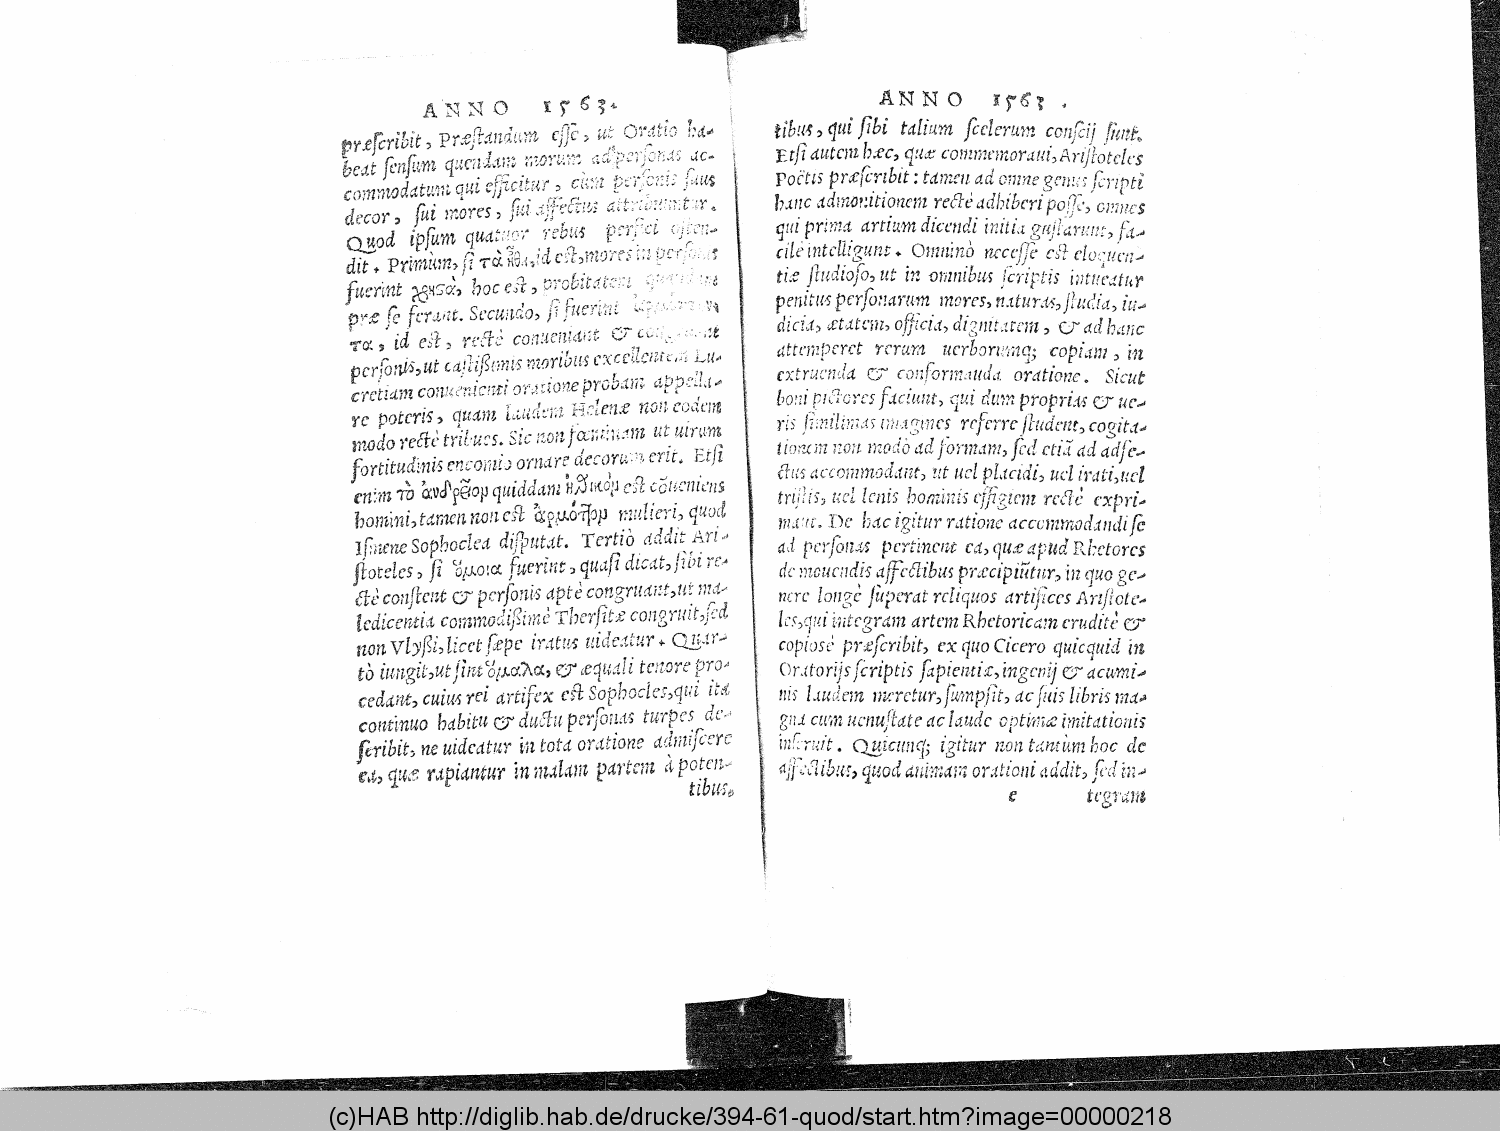 ANNO 1563.
præscribit, Præstandum esse, ut Oratio ha-
beat sensum quendam morum ad personas ac-
commodatum qui efficitur, cùm personis suus
decor, sui mores, sui affectus attribuuntur.
Quod ipsum quatuor rebus perfici osten-
dit. Primùm, si τὰ ἤθη, id est, mores in personis
fuerint χρηστὰ, hoc est, probitatem
præ se ferant. Secundò, si fuerint
τα, id est, rectè conueniant & congruant
personis, ut castißimis moribus excellentem Lu-
cretiam conuenienti oratione probam appella-
re poteris, quam laudem Helenæ non eodem
modo rectè tribues. Sic non fœminam ut uirum
fortitudinis encomio ornare decorum erit. Etsi
enim τὸ ἀνδρεῖον quiddam ἠθικὸν est cõueniens
homini, tamen non est ἁρμόττον mulieri, quod
Ismene Sophoclea disputat. Tertiò addit Ari-
stoteles, si ὅμοια fuerint, quasi dicat, sibi re-
ctè constent & personis aptè congruant, ut ma-
ledicentia commodißimè Thersitæ congruit, sed
non Vlyßi, licet sæpe iratus uideatur. Quar-
tò iungit, ut sint ὅμαλα, & æquali tenore pro-
cedant, cuius rei artifex est Sophocles, qui ita
continuo habitu & ductu personas turpes de-
scribit, ne uideatur in tota oratione admiscere
ea, quæ rapiantur in malam partem à poten-
tibus,
ANNO 1563.
tibus, qui sibi talium scelerum conscij sunt.
Etsi autem hæc, quæ commemoraui, Aristoteles
Poëtis præscribit: tamen ad omne genus scripti
hanc admonitionem rectè adhiberi posse, omnes
qui prima artium dicendi initia gustarunt, fa-
cilè intelligunt. Omninò necesse est eloquen-
tiæ studioso, ut in omnibus scriptis intueatur
penitus personarum mores, naturas, studia, iu-
dicia, ætatem, officia, dignitatem, & ad hanc
attemperet rerum uerborumq; copiam, in
extruenda & conformanda oratione. Sicut
boni pictores faciunt, qui dum proprias & ue-
ris simillimas imagines referre student, cogita-
tionem non modò ad formam, sed etiã ad adfe-
ctus accommodant, ut uel placidi, uel irati, uel
tristis, uel lenis hominis effigiem rectè expri-
mant. De hac igitur ratione accommodandi se
ad personas pertinent ea, quæ apud Rhetores
de mouendis affectibus præcipiũtur, in quo ge-
nere longè superat reliquos artifices Aristote-
les, qui integram artem Rhetoricam eruditè &
copiosè præscribit, ex quo Cicero quicquid in
Oratorijs scriptis sapientiæ, ingenij & acumi-
nis laudem meretur, sumpsit, ac suis libris ma-
gna cum uenustate ac laude optimæ imitationis
inseruit. Quicunq; igitur non tantùm hoc de
affectibus, quod animam orationi addit, sed in-
e tegram
(c)HAB http://diglib.hab.de/drucke/394-61-quod/start.htm?image=00000218